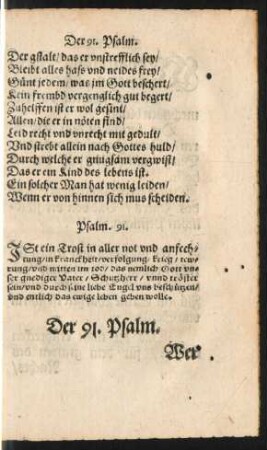 Der 91. Psalm.
Der gstalt/ das er vnstrefflich sey/
Bleibt alles hass vnd neides frey/
Günt jedem/ was jm Gott beschert/
Kein frembd vergenglich gut begert/
Zuhelffen ist er wol gesint/
Allen/ die er in nöten find/
Leid recht vnd vnrecht mit gedult/
Vnd strebt allein nach Gottes huld/
Durch welche er gnugsam vergwist/
Das er ein Kind des lebens ist.
Ein solcher Man hat wenig leiden/
Wenn er von hinnen sich mus scheiden.
Psalm. 91.
ISt ein Trost in aller not vnd anfech-
tung/ in kranckheit/ verfolgung/ krieg/ tew-
rung/ vnd mitten im tod/ das nemlich Gott vn-
ser gnediger Vater/ Schutzherr/ vnnd tröster
sein/ vnd durch seine liebe Engel vns beschützen/
vnd entlich das ewige leben geben wolle.
Der 91. Psalm.
Wer